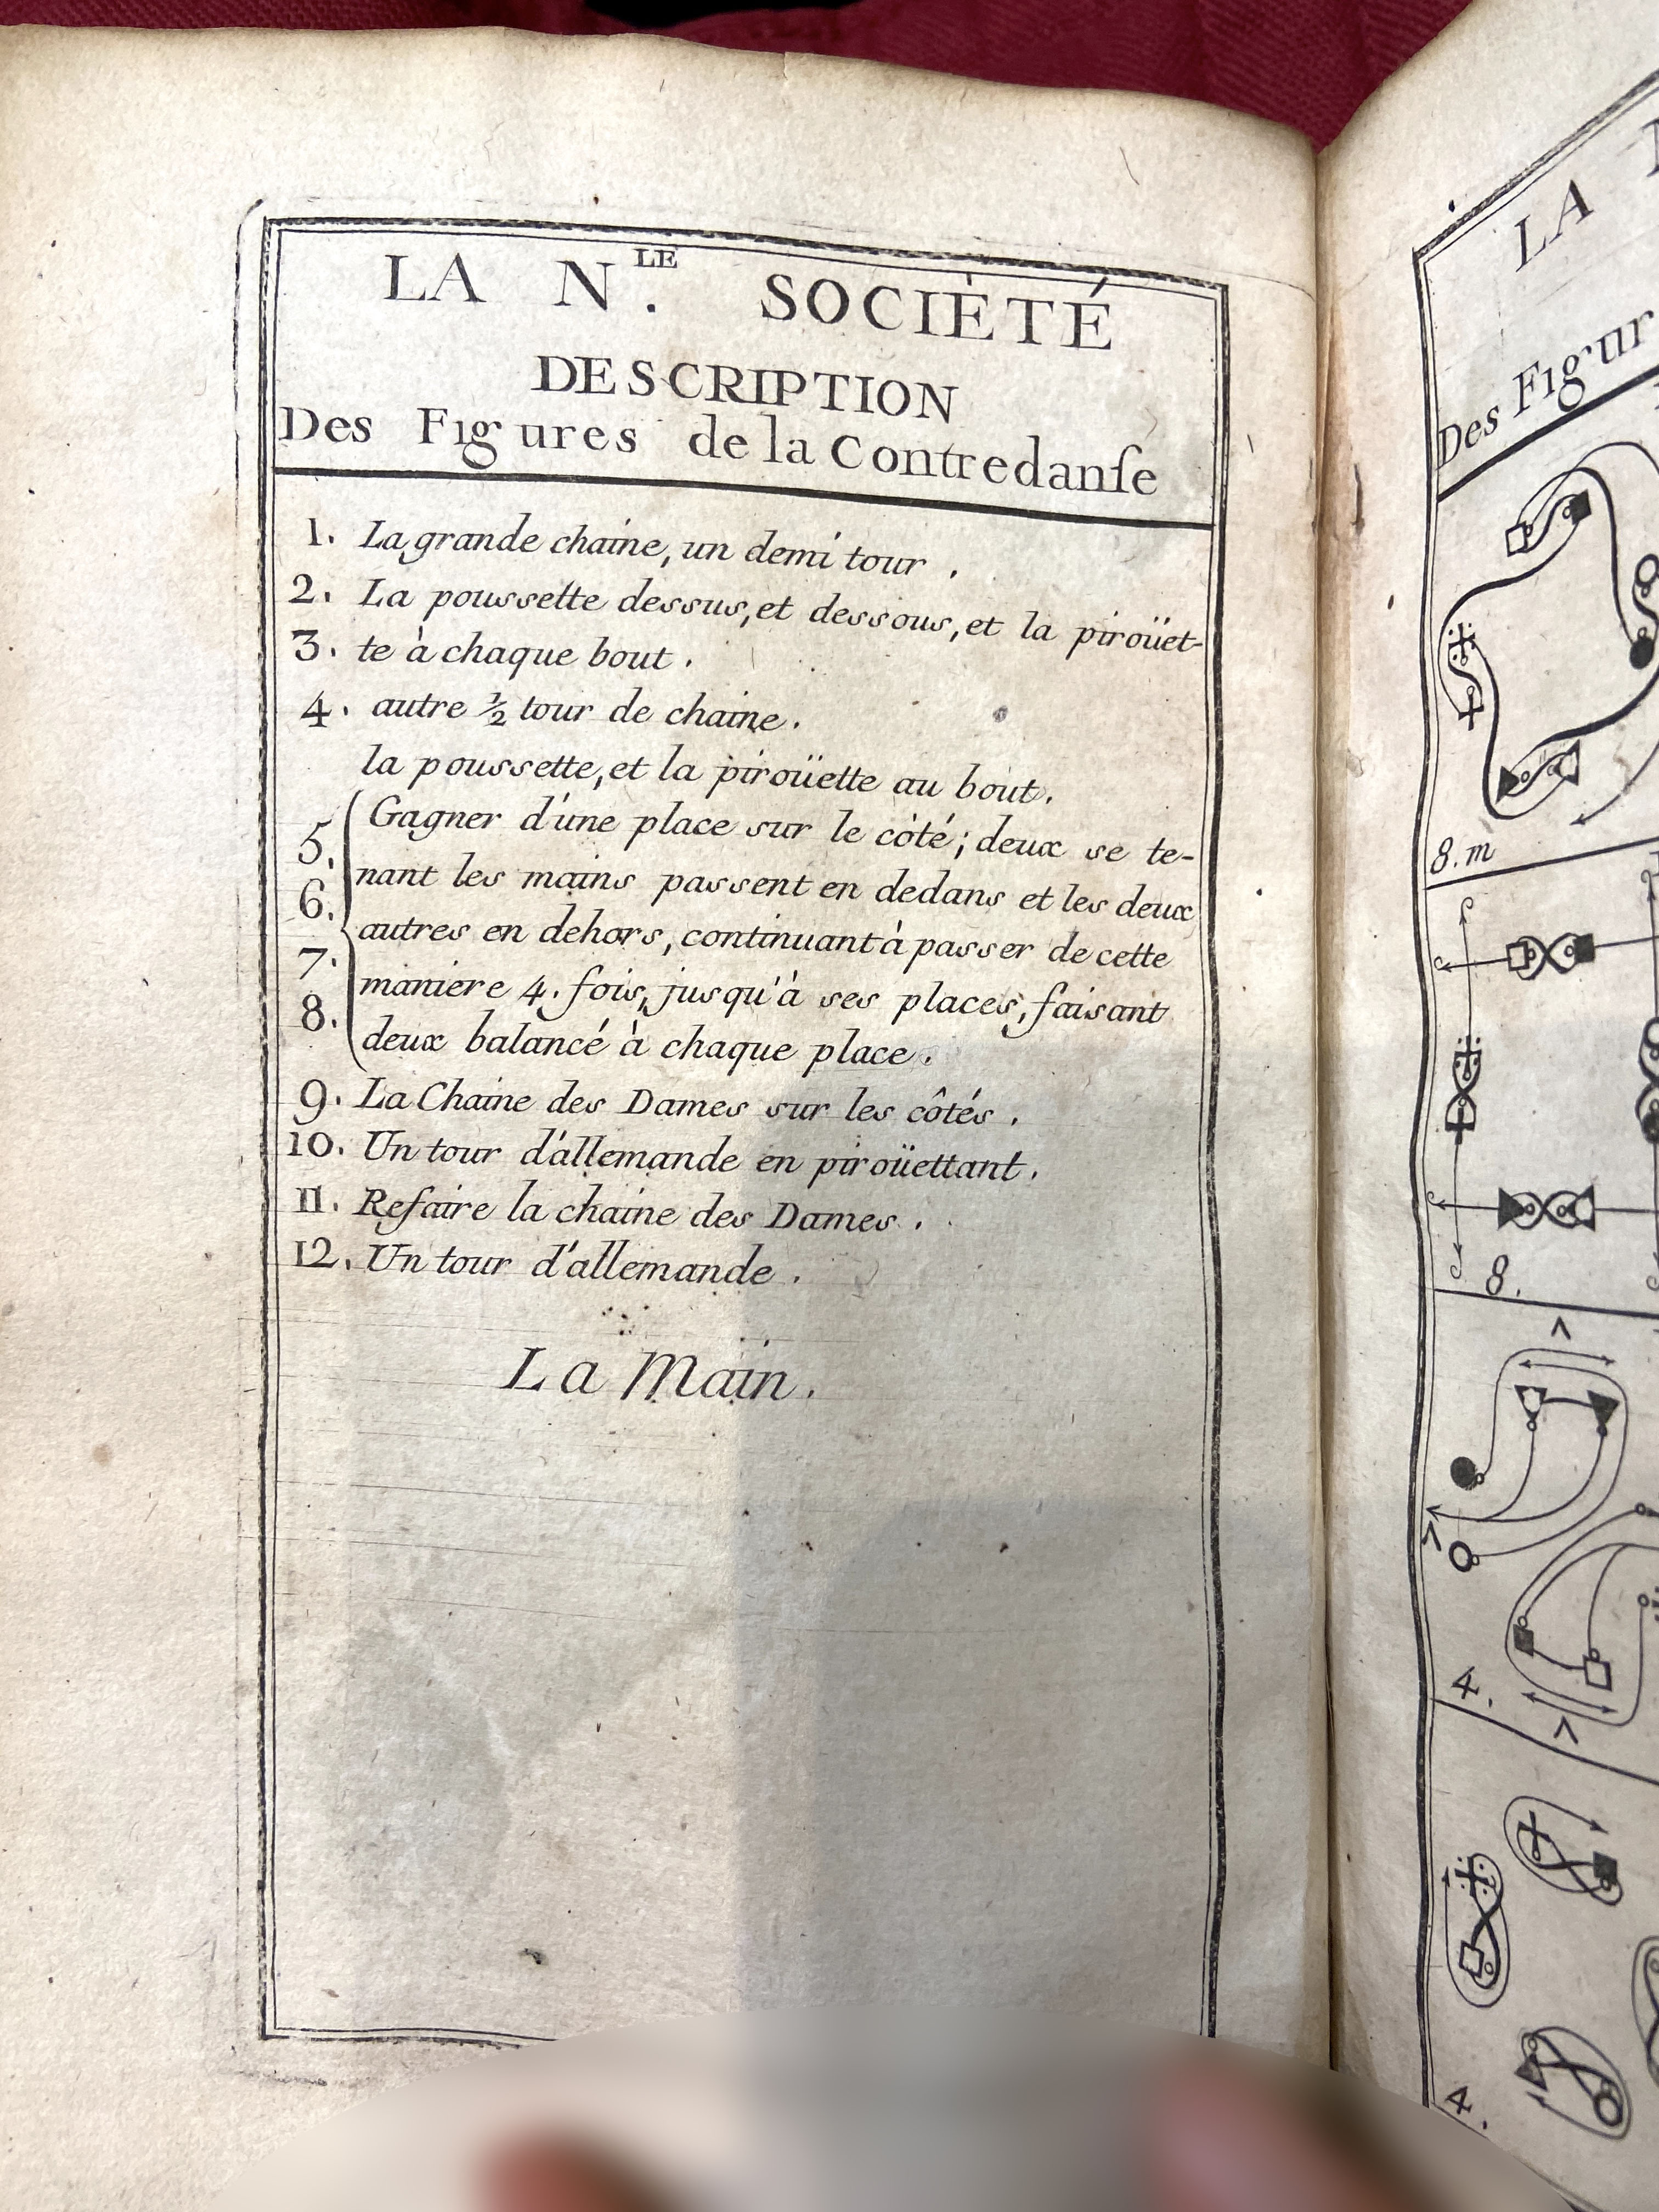 LA N.LE SOCIÉTÉ
DESCRIPTION
Des Figures de la Contredanſe
1. La grande chaine, un demi tour .
2. La poussette dessus, et dessous, et la piroüet-
3. te à chaque bout .
4. autre ½ tour de chaine .
la poussette, et la piroüette au bout.
Gagner d'une place sur le côté ; deux se te-
5. nant les mains passent en dedans et les deux
6. autres en dehors, continuant à passer de cette
7. maniere 4. fois, jusqu'à ses places, faisant
8. deux balancé à chaque place .
9. La Chaine des Dames sur les côtés .
10. Un tour d'allemande en piroüettant .
11. Refaire la chaine des Dames .
12. Un tour d'allemande .
La Main .
LA
Des Figur
8. m
8.
4.
4.